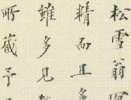 松雪翁
精而且多
雖多見
所蔵予